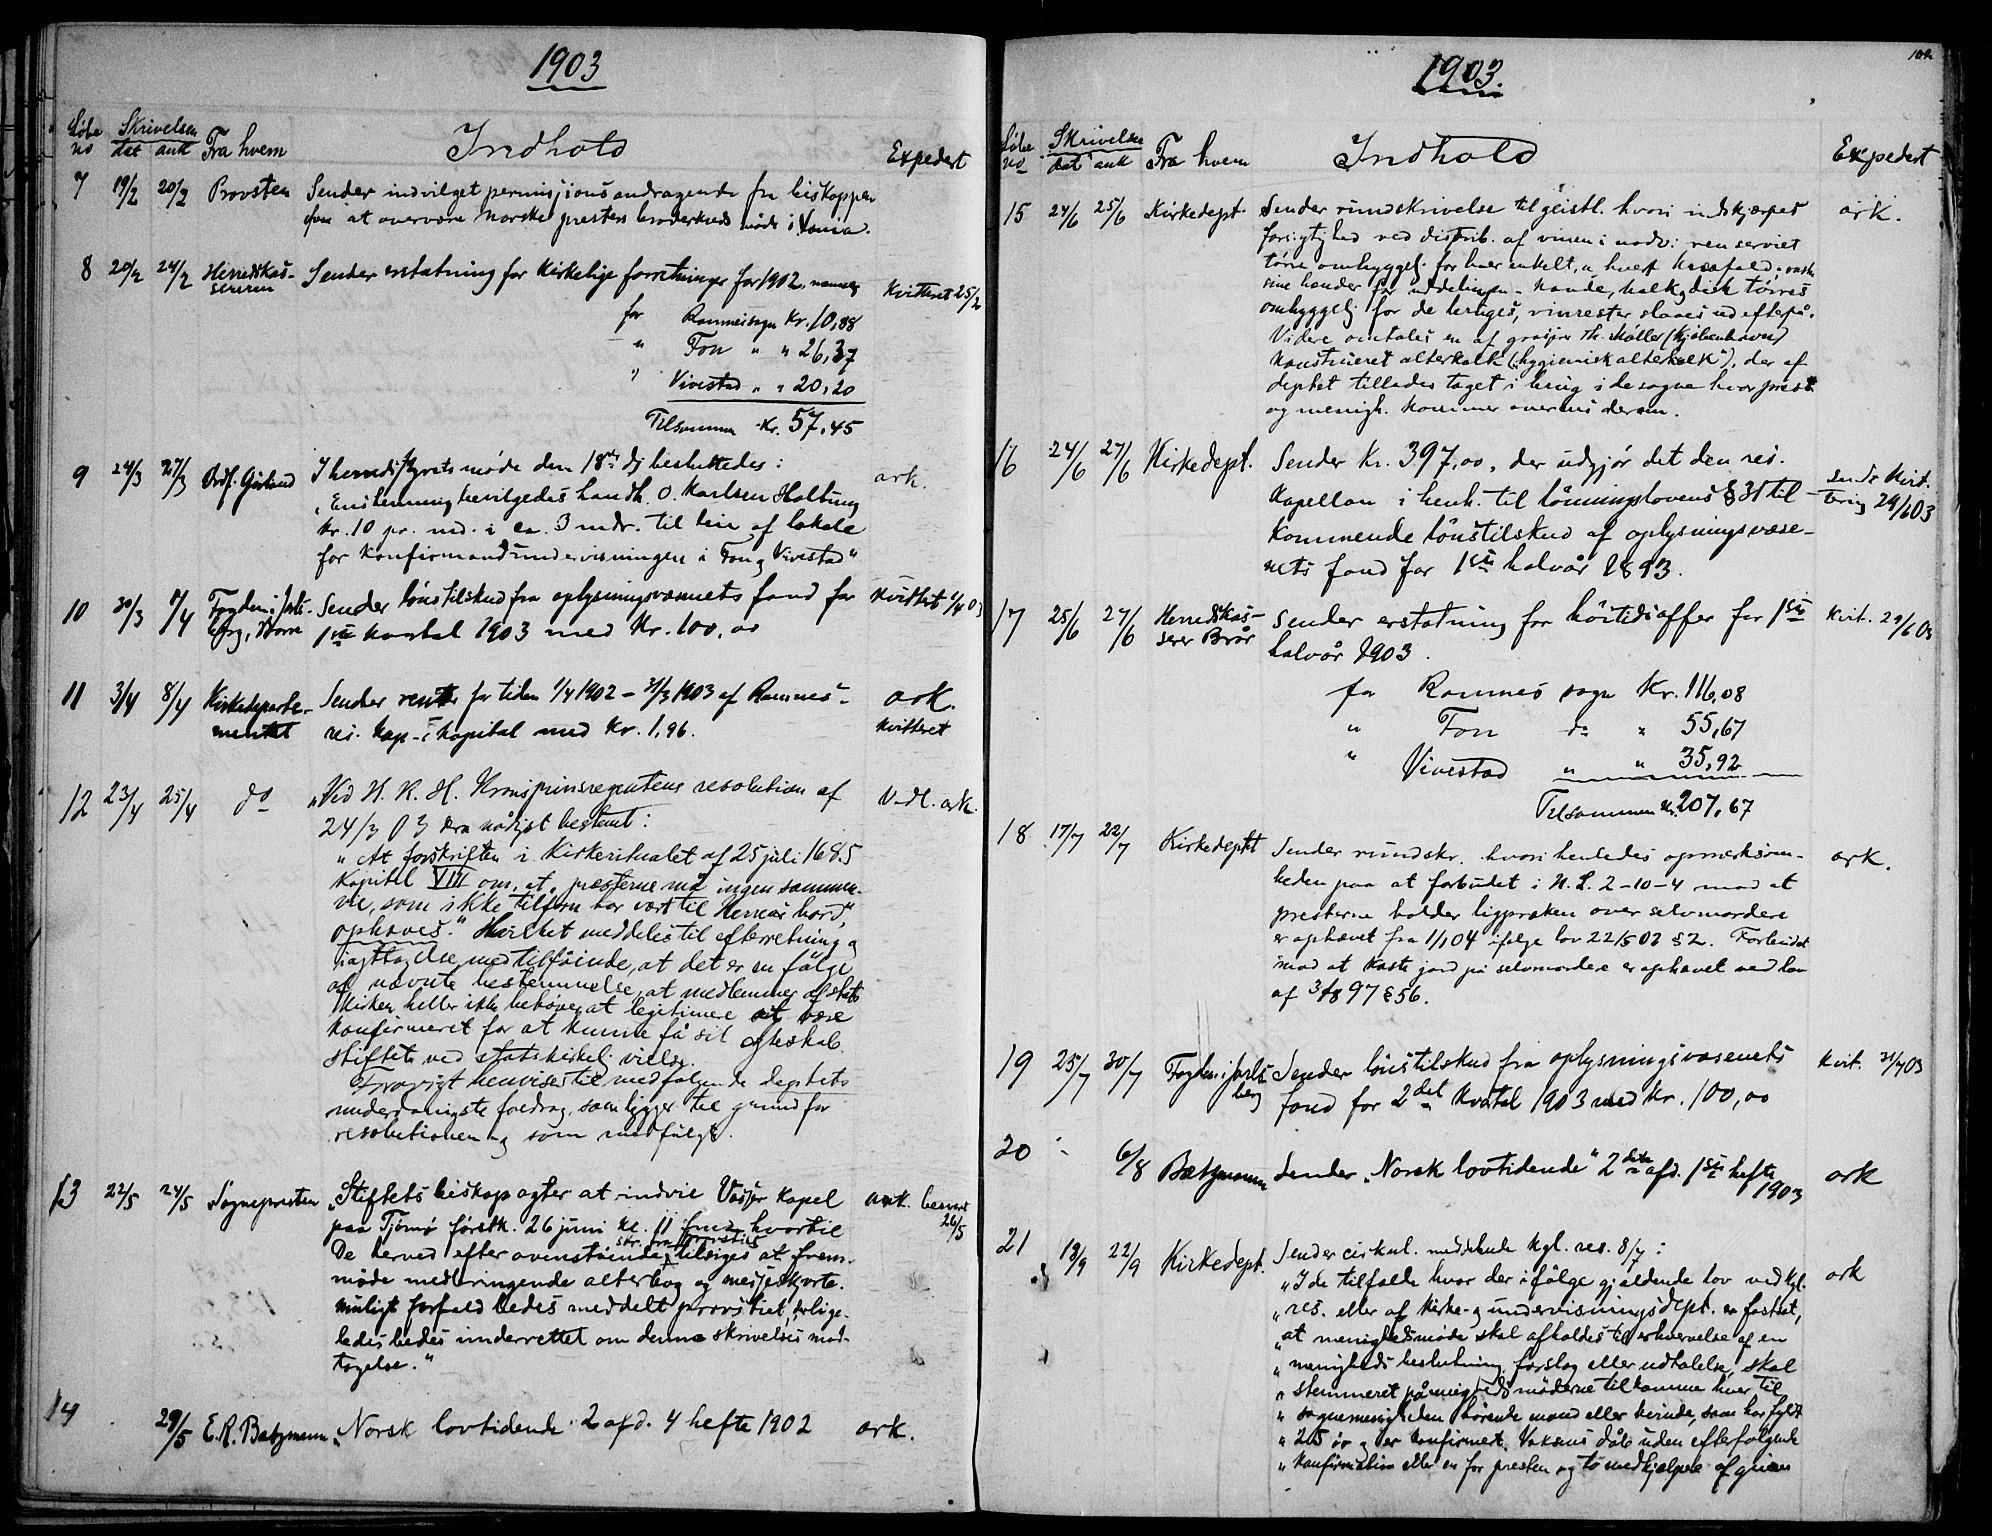 1903
Løbe no Skrivelsen dat ank Fra hvem Indhold Expedert
7 19/2 20/2 Provsten Sender indvilget permisjonsandragende fra biskoppen
at overvære norske presters broderkreds møde i
8 20/2 24/2 Herredskas- Sender erstatning for kirkelige forretninger for 1902, nemlig
sereren Kvitteret 25/2
for Ramnes sogn Kr. 10,88
" Fon " " 26,37
" Vivestad " " 20,20
Tilsammen Kr. 57,45
9 24/3 27/3 Ordf. I herredsstyrets møde den 18de ds besluttedes: ark.
"Enstemmig bevilgedes handh. O. Karlsen Holtung
Kr. 10 pr. md. i ca. 3 mdr. til leie af lokale
for konfirmandundervisningen i Fon og Vivestad"
10 30/3 1/4 Fogden i Jarls- Sender lønstilskud fra oplysningsvæsenets fond for Kvittert 1/4 03
berg, 1ste kvartal 1903 med Kr. 100,00
11 3/4 8/4 Kirkedeparte- Sender renter for tiden 1/4 1902 – 31/3 1903 af Ramnes ark.
mentet res. kap. kapital med Kr. 1,96. Kvitteret
12 23/4 25/4 do "Ved H. K. H. Kronprinsregentens resolution af V-dl. ark.
24/3 03 er nådigst bestemt:
"At forskriften i Kirkeritualet af 25 juli 1685
Kapitel VIII om, at "præsterne må ingen sammen-
vie, som ikke tilforn har vært til Herrens bord,"
ophæves." Hvilket meddeles til efterretning og
iagttagelse med tilføiende, at det er en følge
af nævnte bestemmelse, at medlemmer af stats
kirken heller ikke behøver at legitimere at være
konfirmeret for at kunne få sit egteskab
stiftet ved statskirkelig vielse.
Forøvrigt henvises til medfølgende deptets
underdanigste foredrag, som ligger til grund for
resolutionen og som medfulgte.
13 22/5 24/5 Sognepresten "Stiftets biskop agter at indvie Vasser Kapel ark. besvart
paa Tjømø førstk. 26 juni kl. 11 fm. hvortil 26/5
skr. fra provsti
De herved efter ovenstående tilsiges at frem-
møde medbringende alterbog og messeskjorte.
Muligt forfald bedes meddelt provstiet, lige-
ledes bedes underrettet om denne skrivelses mod-
tagelse."
14 29/5 E. R. Batzmann "Norsk lovtidende" 2 afd. 4 hefte 1902 ark.
102
1903.
Løbe no Skrivelsen dat ank Fra hvem Indhold Expedert
15 24/6 25/6 Kirkedept. Sender rundskrivelse til geistl. hvori indskjærpes ark.
forsigtighed ved distrib. af vinen i nadv: ren serviet
tørre omhyggelig for hver enkelt, og hvert knæfald; vaske
sine hænder før uddelingen – kande, kalk og disk tørres
omhyggelig før de bruges, vinrester slaaes ud efterpå.
Videre omtales en af Th. Møller (Kjøbenhavn)
konstrueret alterkalk ("hygienisk alterkalk"), der af
deptet tillades taget i brug i de sogne hvor prest
og menigh. kommer overens derom.
16 24/6 27/6 Kirkedept. Sender Kr. 397,00, der udgjør det den res. sendt Kvit-
kapellan i henh. til lønningslovens § 31 til- tering 29/6 03
kommende lønstilskud af oplysningsvæse-
nets fond for 1ste halvår 1893.
17 25/6 27/6 Herredskas- Sender erstatning for høitidsoffer for 1ste Kvit. 29/6 03
serer Brår halvår 1903.
for Ramnes sogn Kr. 116,08
" Fon do " 55,67
" Vivestad " " 35,92
Tilsammen Kr. 207,67
18 17/7 22/7 Kirkedeptet Sender rundskr. hvori henledes opmærksom- ark.
heden paa at forbudet i N. L. 2-10-4 mod at
presterne holder ligpræken over selvmordere
er ophævet fra 1/1 04 ifølge lov 22/5 02 § 2. Forbudet
mod at kaste jord på selvmordere er ophævet ved lov
af 3/8 97 § 56.
19 25/7 30/7 Fogden i Jarls- Sender lønstilskud fra oplysningsvæsenets Kvit. 31/7 03
berg fond for 2det kvartal 1903 med Kr. 100,00
20 6/8 Batzmann Sender "Norsk lovtidende" 2den afd. 1ste hefte ark
1903
21 18/9 22/9 Kirkedept. Sender cirkul. meddelende kgl. res. 8/7: ark
"I de tilfælde hvor der ifølge gjældende lov ved kgl.
" res. eller af kirke- og undervisningsdept. er fastsat,
" at menighedsmøde skal afholdes til erhvervelse af en
" menigheds beslutning, forslag eller udtalelse, skal
" stemmeret på menighedsmøderne tilkomme hver til
" sognemenigheden hørende mand eller kvinde, som har fyldt
" 25 år og er konfirmert. Voksnes dåb uden efterfølgende
" konfirmation eller en for presten og to medhjælpere afgiven